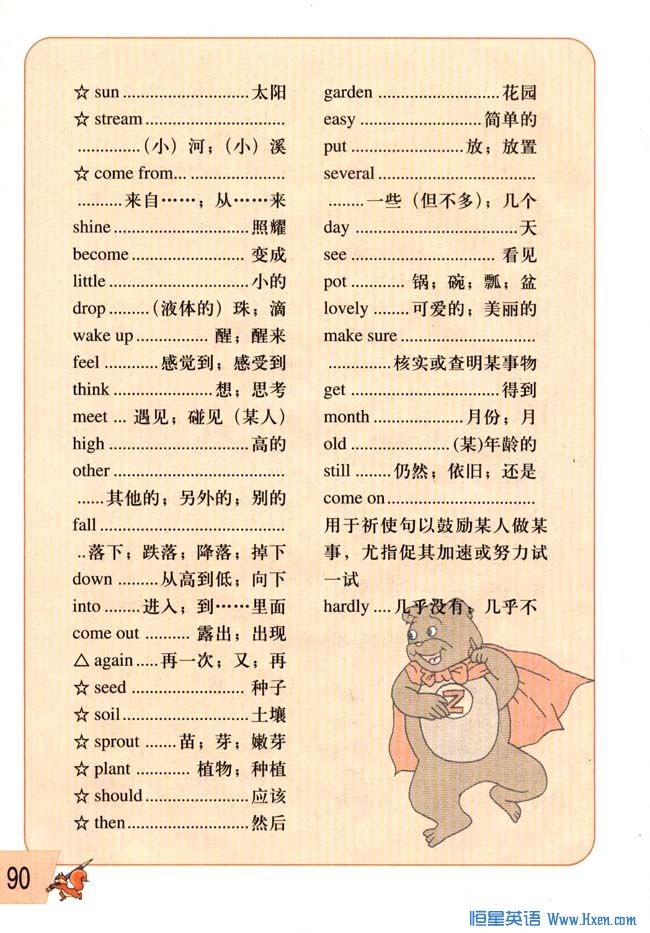 ☆ sun ............................ 太阳
☆ stream ...............................
..............（小）河；（小）溪
☆ come from... .....................
..........来自……；从……来
shine .............................. 照耀
become ......................... 变成
little ............................... 小的
drop .........（液体的）珠；滴
wake up ................ 醒；醒来
feel ............ 感觉到；感受到
think ...................... 想；思考
meet ... 遇见；碰见（某人）
high ............................... 高的
other ......................................
......其他的；另外的；别的
fall .........................................
..落下；跌落；降落；掉下
down .........从高到低；向下
into .........进入；到……里面
come out .......... 露出；出现
△ again .....再一次；又；再
☆ seed ......................... 种子
☆ soil ............................ 土壤
☆ sprout .......苗；芽；嫩芽
☆ plant ............ 植物；种植
☆ should ....................... 应该
☆ then ........................... 然后
garden ........................... 花园
easy ........................... 简单的
put ......................... 放；放置
several ...................................
........一些（但不多）；几个
day .................................... 天
see ................................ 看见
pot ............ 锅；碗；瓢；盆
lovely ........可爱的；美丽的
make sure ..............................
..............核实或查明某事物
get ................................. 得到
month .................... 月份；月
old ...................... (某)年龄的
still .........仍然；依旧；还是
come on .................................
用于祈使句以鼓励某人做某
事，尤指促其加速或努力试
一试
hardly ....几乎没有；几乎不
Z
90
恒星英语 Www.Hxen.com